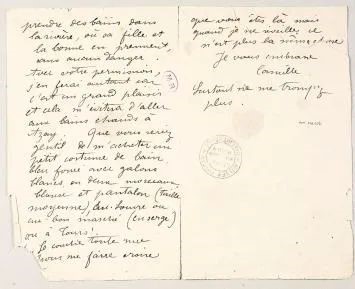 prendre des bains dans
la rivière, où sa fille et
la bonne en prennent,
sans aucun danger.
Avec votre permission,
j'en ferai autant car
c'est un grand plaisir
et cela m'évitera d'aller
aux bains chauds à
Azay. Que vous seriez
gentil de m'acheter un
petit costume de bain
bleu foncé avec galons
blancs, en deux morceaux
blouse et pantalon (taille
moyenne) au Louvre ou
au bon marché (en serge)
ou à Tours!
Je couche toute nue
pour me faire croire
que vous êtes là mais
quand je me réveille ce
n'est plus la même chose
Je vous embrasse
Camille
Surtout ne me trompez
plus.